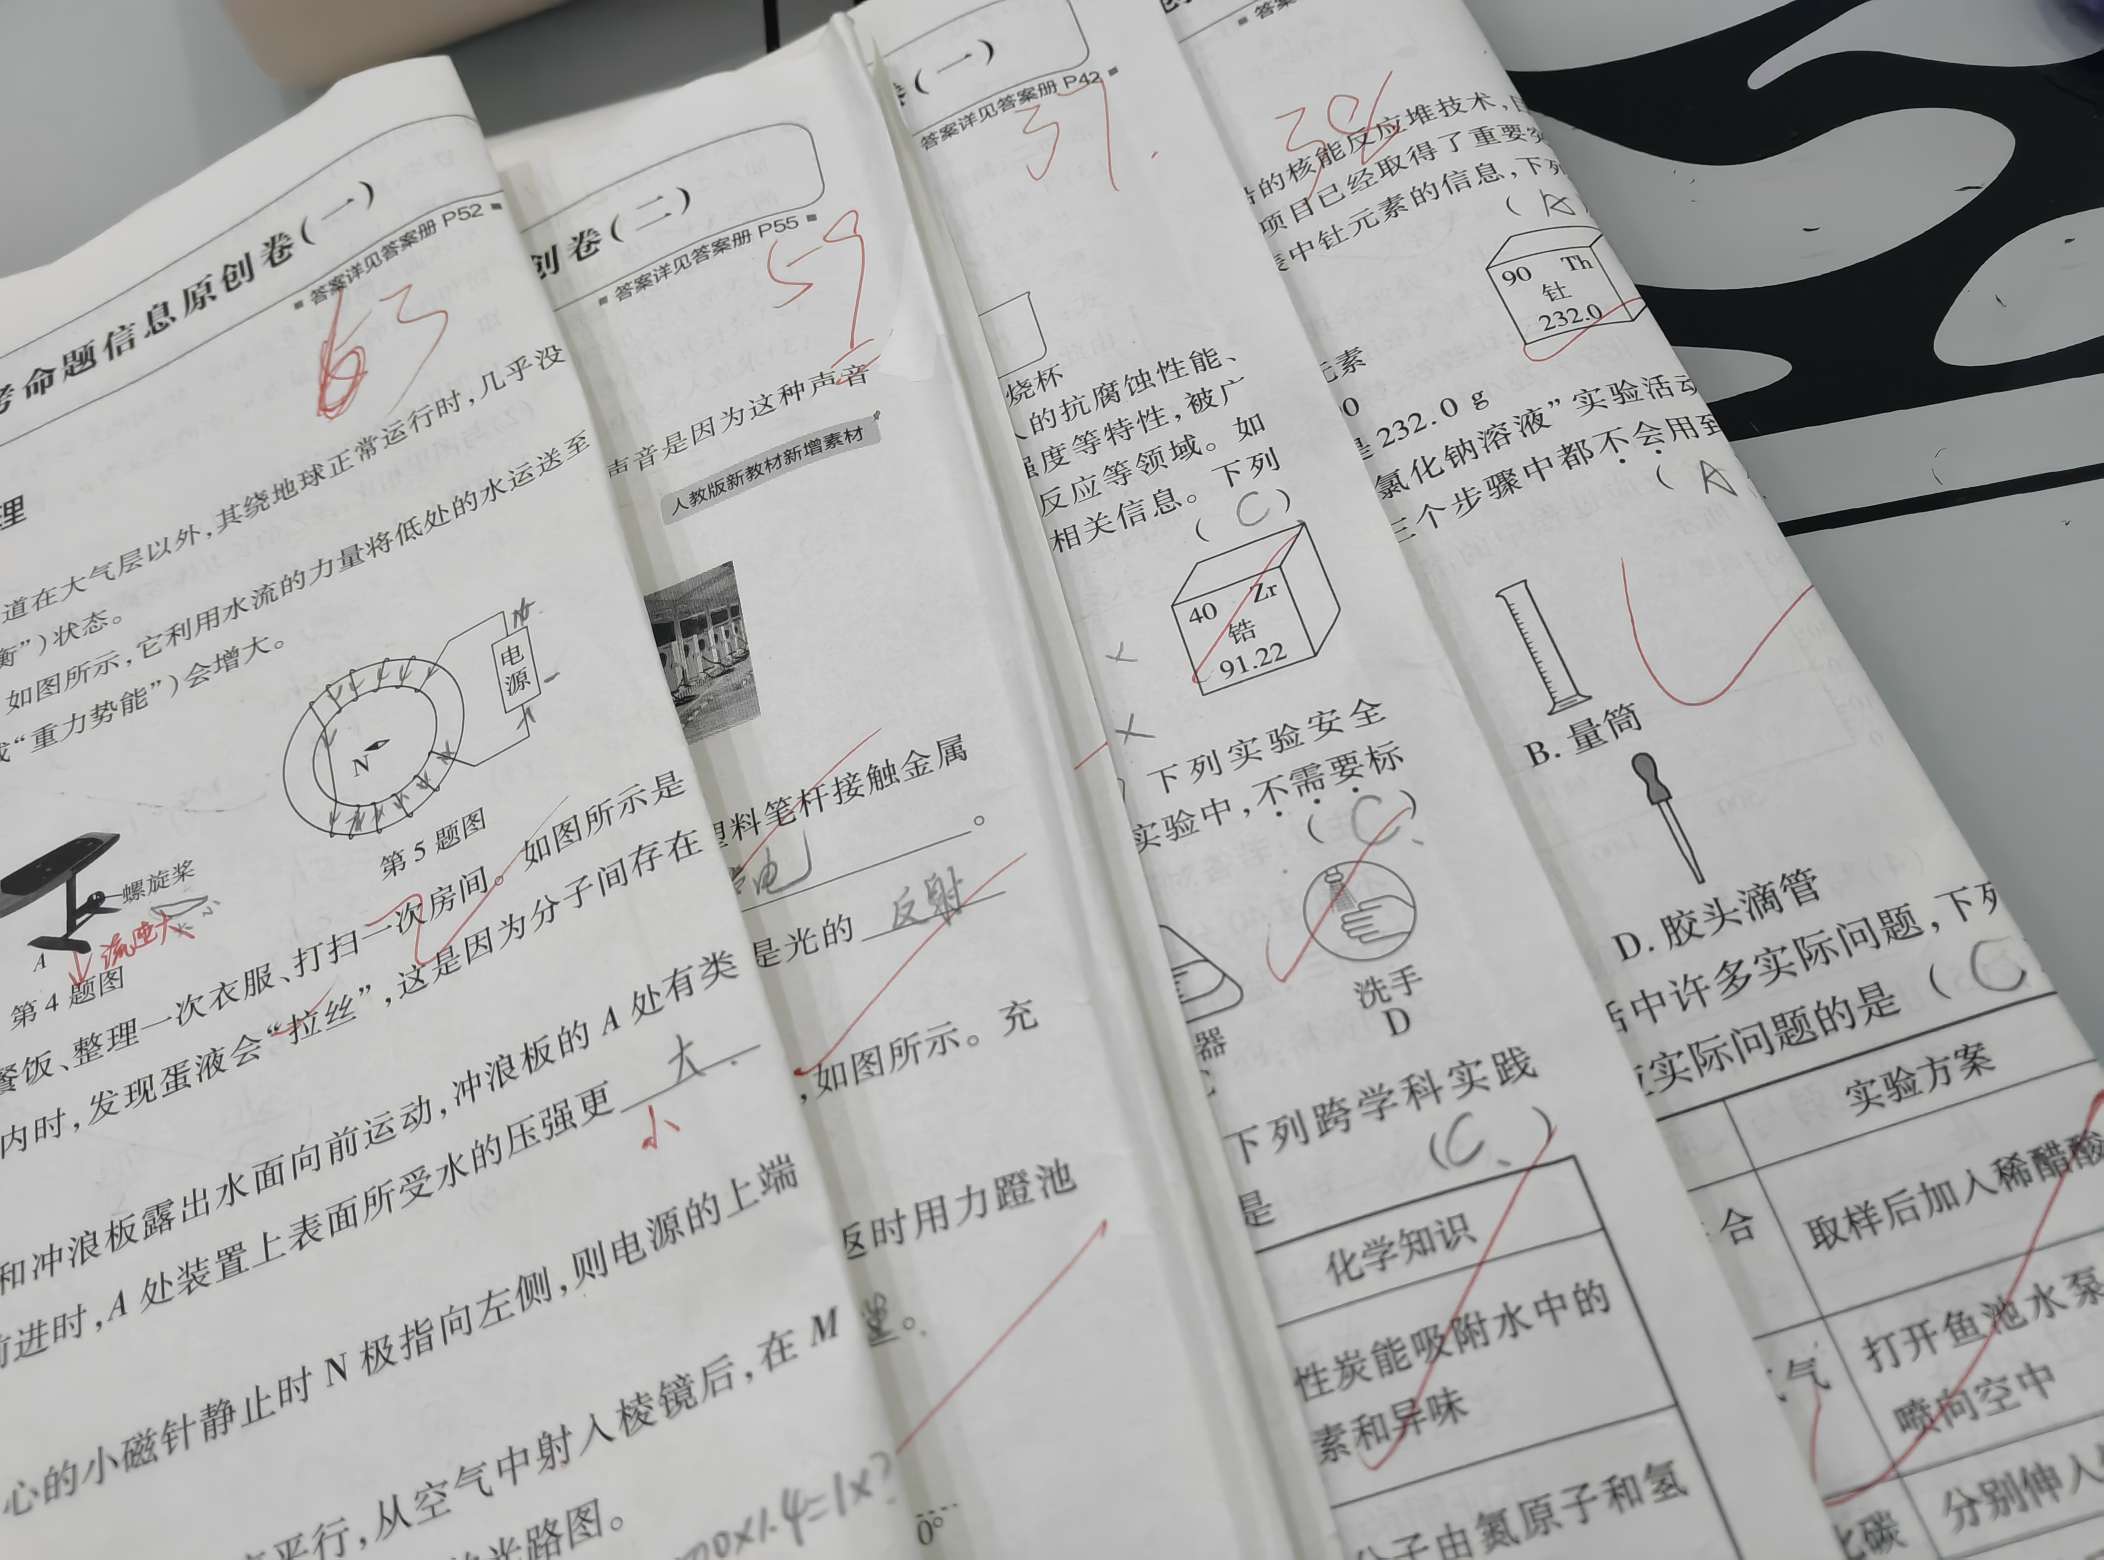 考命题信息原创卷(一)
▪答案详见答案册 P52▪
63
理
道在大气层以外,其绕地球正常运行时,几乎没
衡”)状态。
如图所示,它利用水流的力量将低处的水运送至
“重力势能”)会增大。
电源
N
第5题图
螺旋桨
流速大
A
第4题图
餐饭、整理一次衣服、打扫一次房间。如图所示是
内时,发现蛋液会“拉丝”,这是因为分子间存在
和冲浪板露出水面向前运动,冲浪板的 A 处有类
前进时,A 处装置上表面所受水的压强更 大.
小
心的小磁针静止时 N 极指向左侧,则电源的上端
平行,从空气中射入棱镜后,在 M
光路图。
创卷(二)
▪答案详见答案册 P55▪
59
声音是因为这种声音
人教版新教材新增素材
塑料笔杆接触金属
电。
是光的 反射
,如图所示。充
返时用力蹬池
。
0°
(一)
答案详见答案册 P42▪
37.
烧杯
的抗腐蚀性能、
强度等特性,被广
反应等领域。如
相关信息。下列
(C)
40 Zr
锆
91.22
下列实验安全
实验中,不需要标
(C)
洗手
D
器
下列跨学科实践
是
(C)
化学知识
性炭能吸附水中的
素和异味
分子由氮原子和氢
▪答案
38
的核能反应堆技术,
项目已经取得了重要突
中钍元素的信息,下列
(A
90 Th
钍
232.0
元素
0
是 232.0 g
氯化钠溶液”实验活动
三个步骤中都不会用到
(A
B. 量筒
D. 胶头滴管
活中许多实际问题,下列
应实际问题的是 (C
实验方案
合
取样后加入稀醋酸
气
打开鱼池水泵
喷向空中
化碳
分别伸入